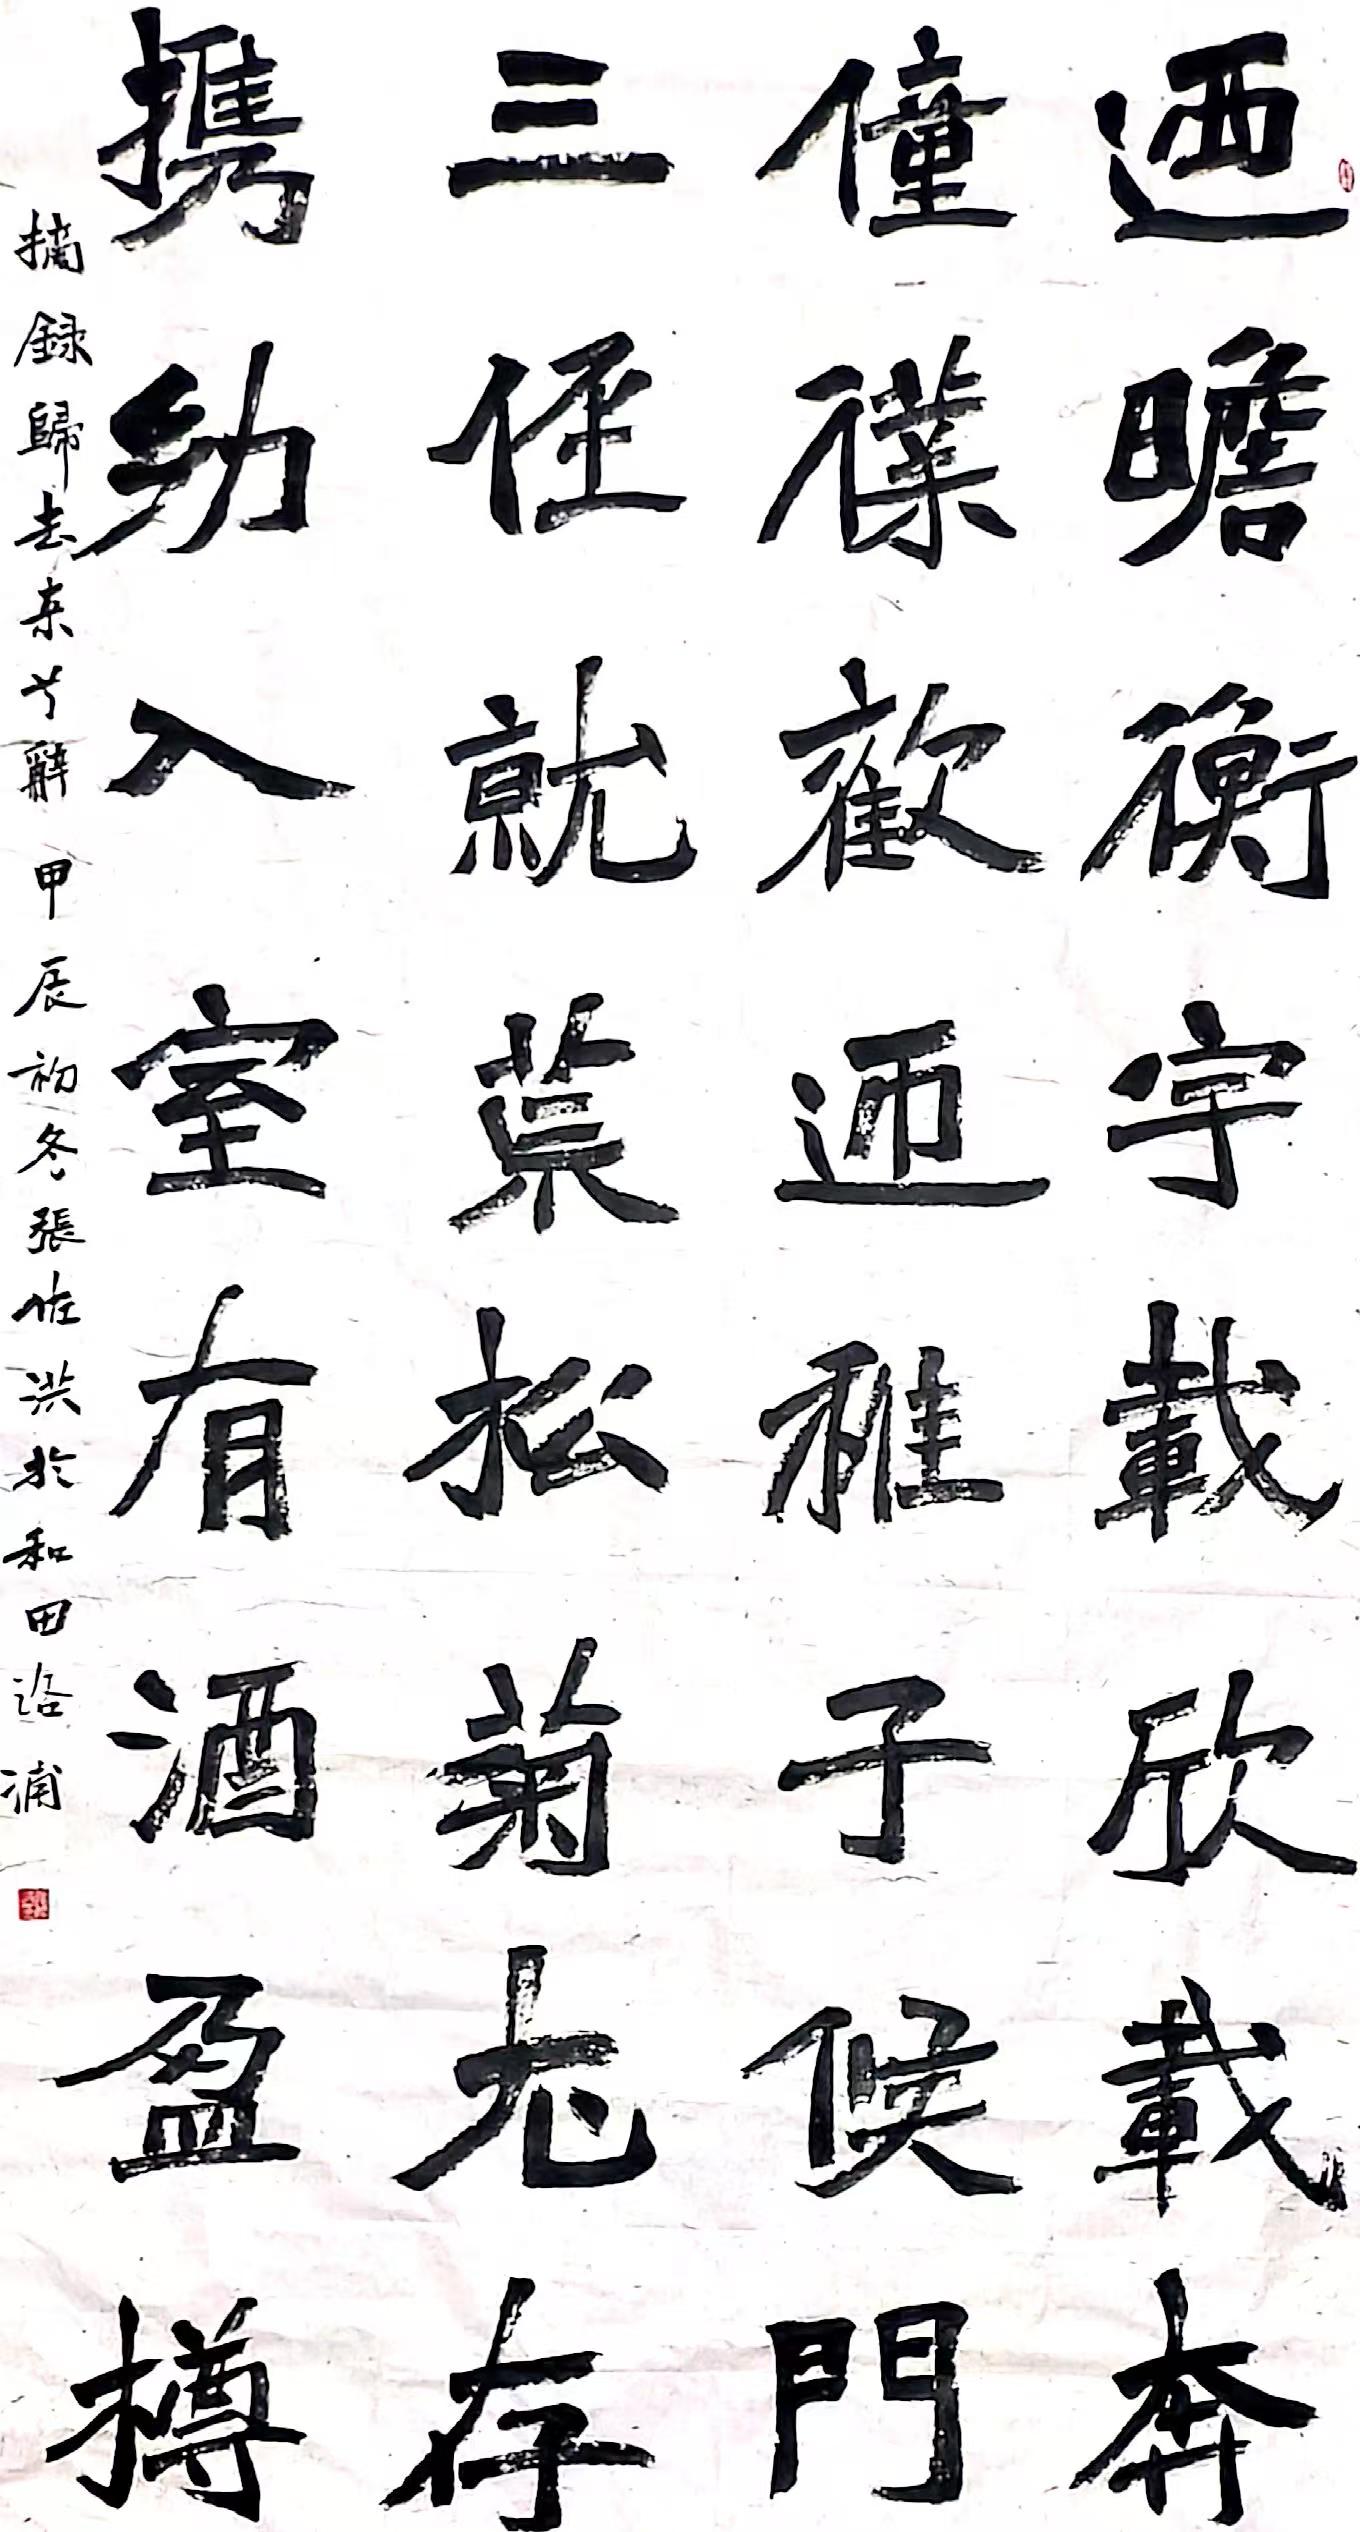 迺瞻衡宇載欣載奔
僮僕歡迎稚子候門
三徑就荒松菊尤存
携幼入室有酒盈樽
摘録歸去来兮辭甲辰初冬張佐洪於和田洛浦